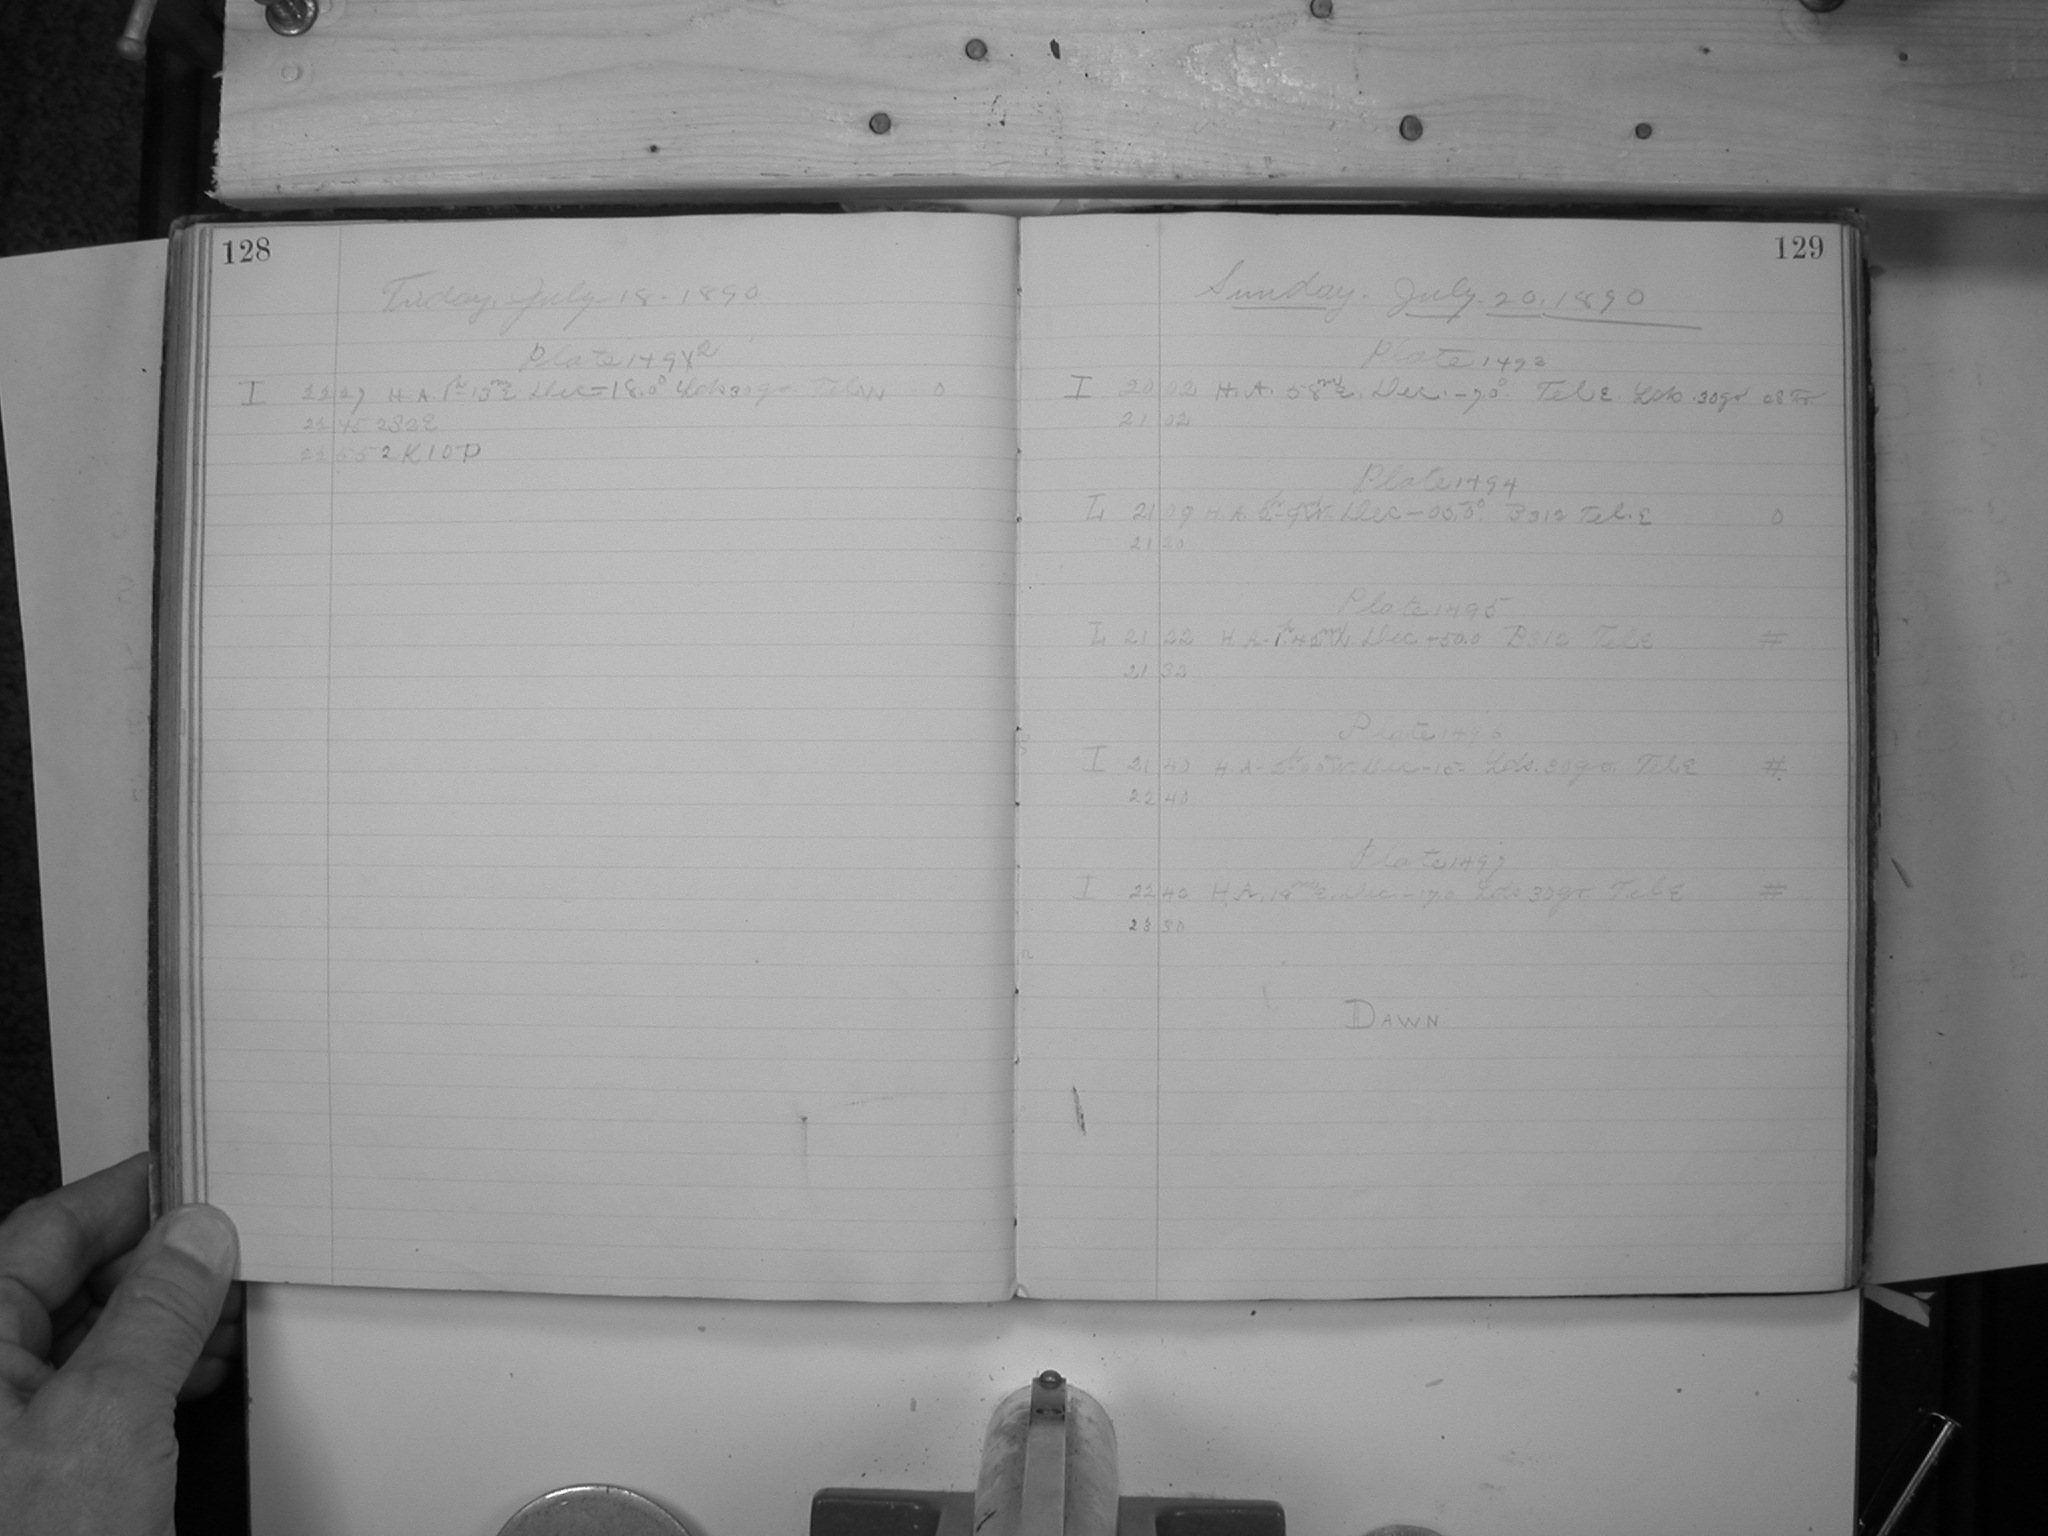 128
Friday, July-18-1890
Plate 1492
I 22 27 H.A. 1h-13m E Dec-18.0° 30gr Tel W 0
22 45 2S2E
22 55 2K10P
129
Sunday. July. 20. 1890
Plate 1493
I 20 02 H.A. 58m E. Dec. -70° Tel. E. 30gr
21 02
Plate 1494
L 21 09 H.A. Dec B312 Tel. E 0
21 20
Plate 1495
L 21 22 H.A. Dec +50.0 B312 Tel E #
21 32
Plate 1496
I 21 40 H.A. Dec -15 30gr. Tel. E #
22 40
Plate 1497
I 22 40 H.A. E. Dec -17.0 30gr. Tel E #
23 50
DAWN